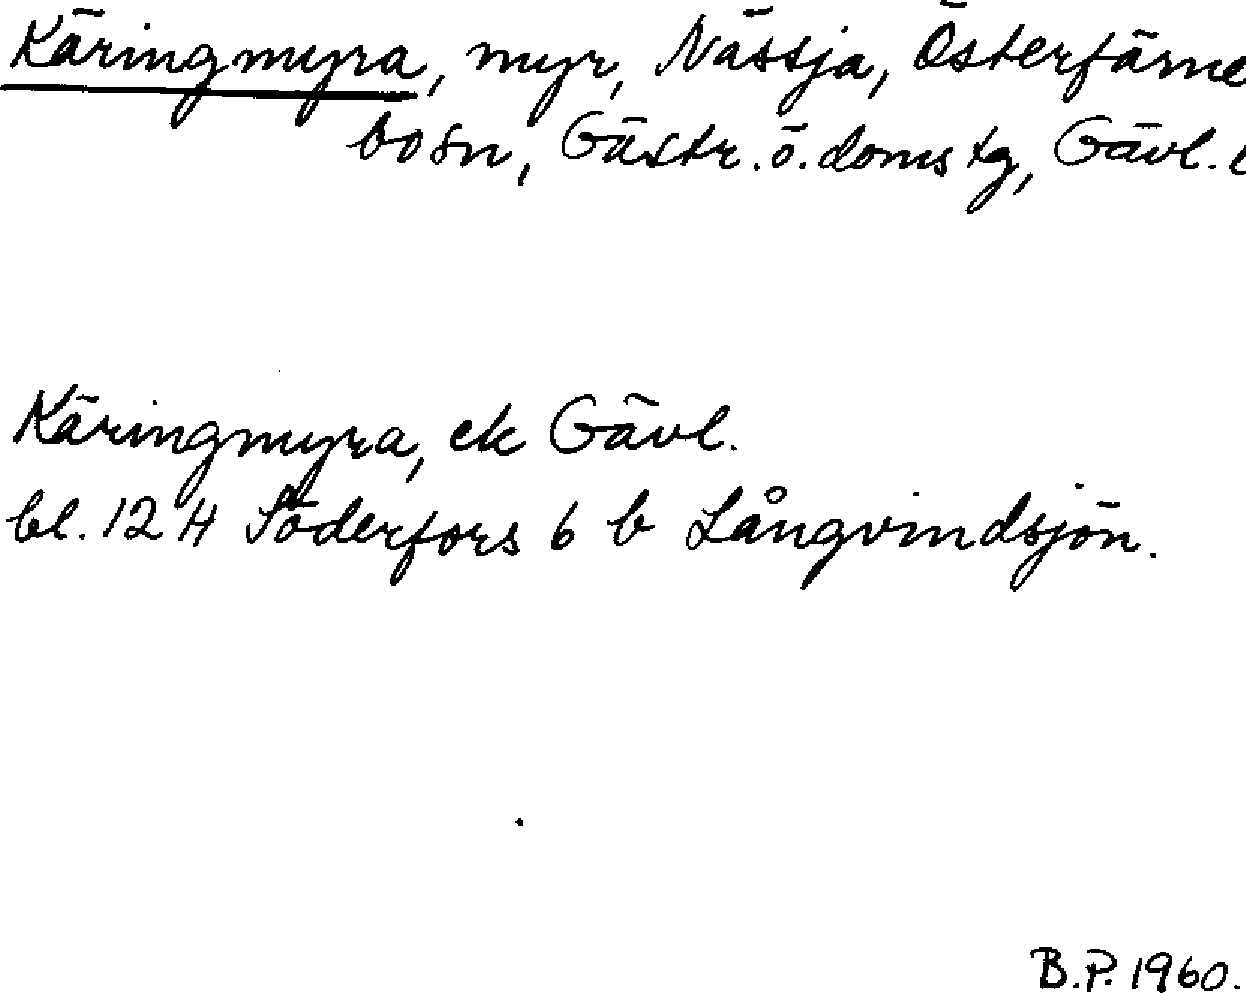 Käringmyra, myr, Nässja, Österfärne
bosn, Gästr. ö. domstg, Gävl. l
Käringmyra, ek Gävl.
bl. 12 H Söderfors 6 b Långvindsjön.
B.P. 1960.